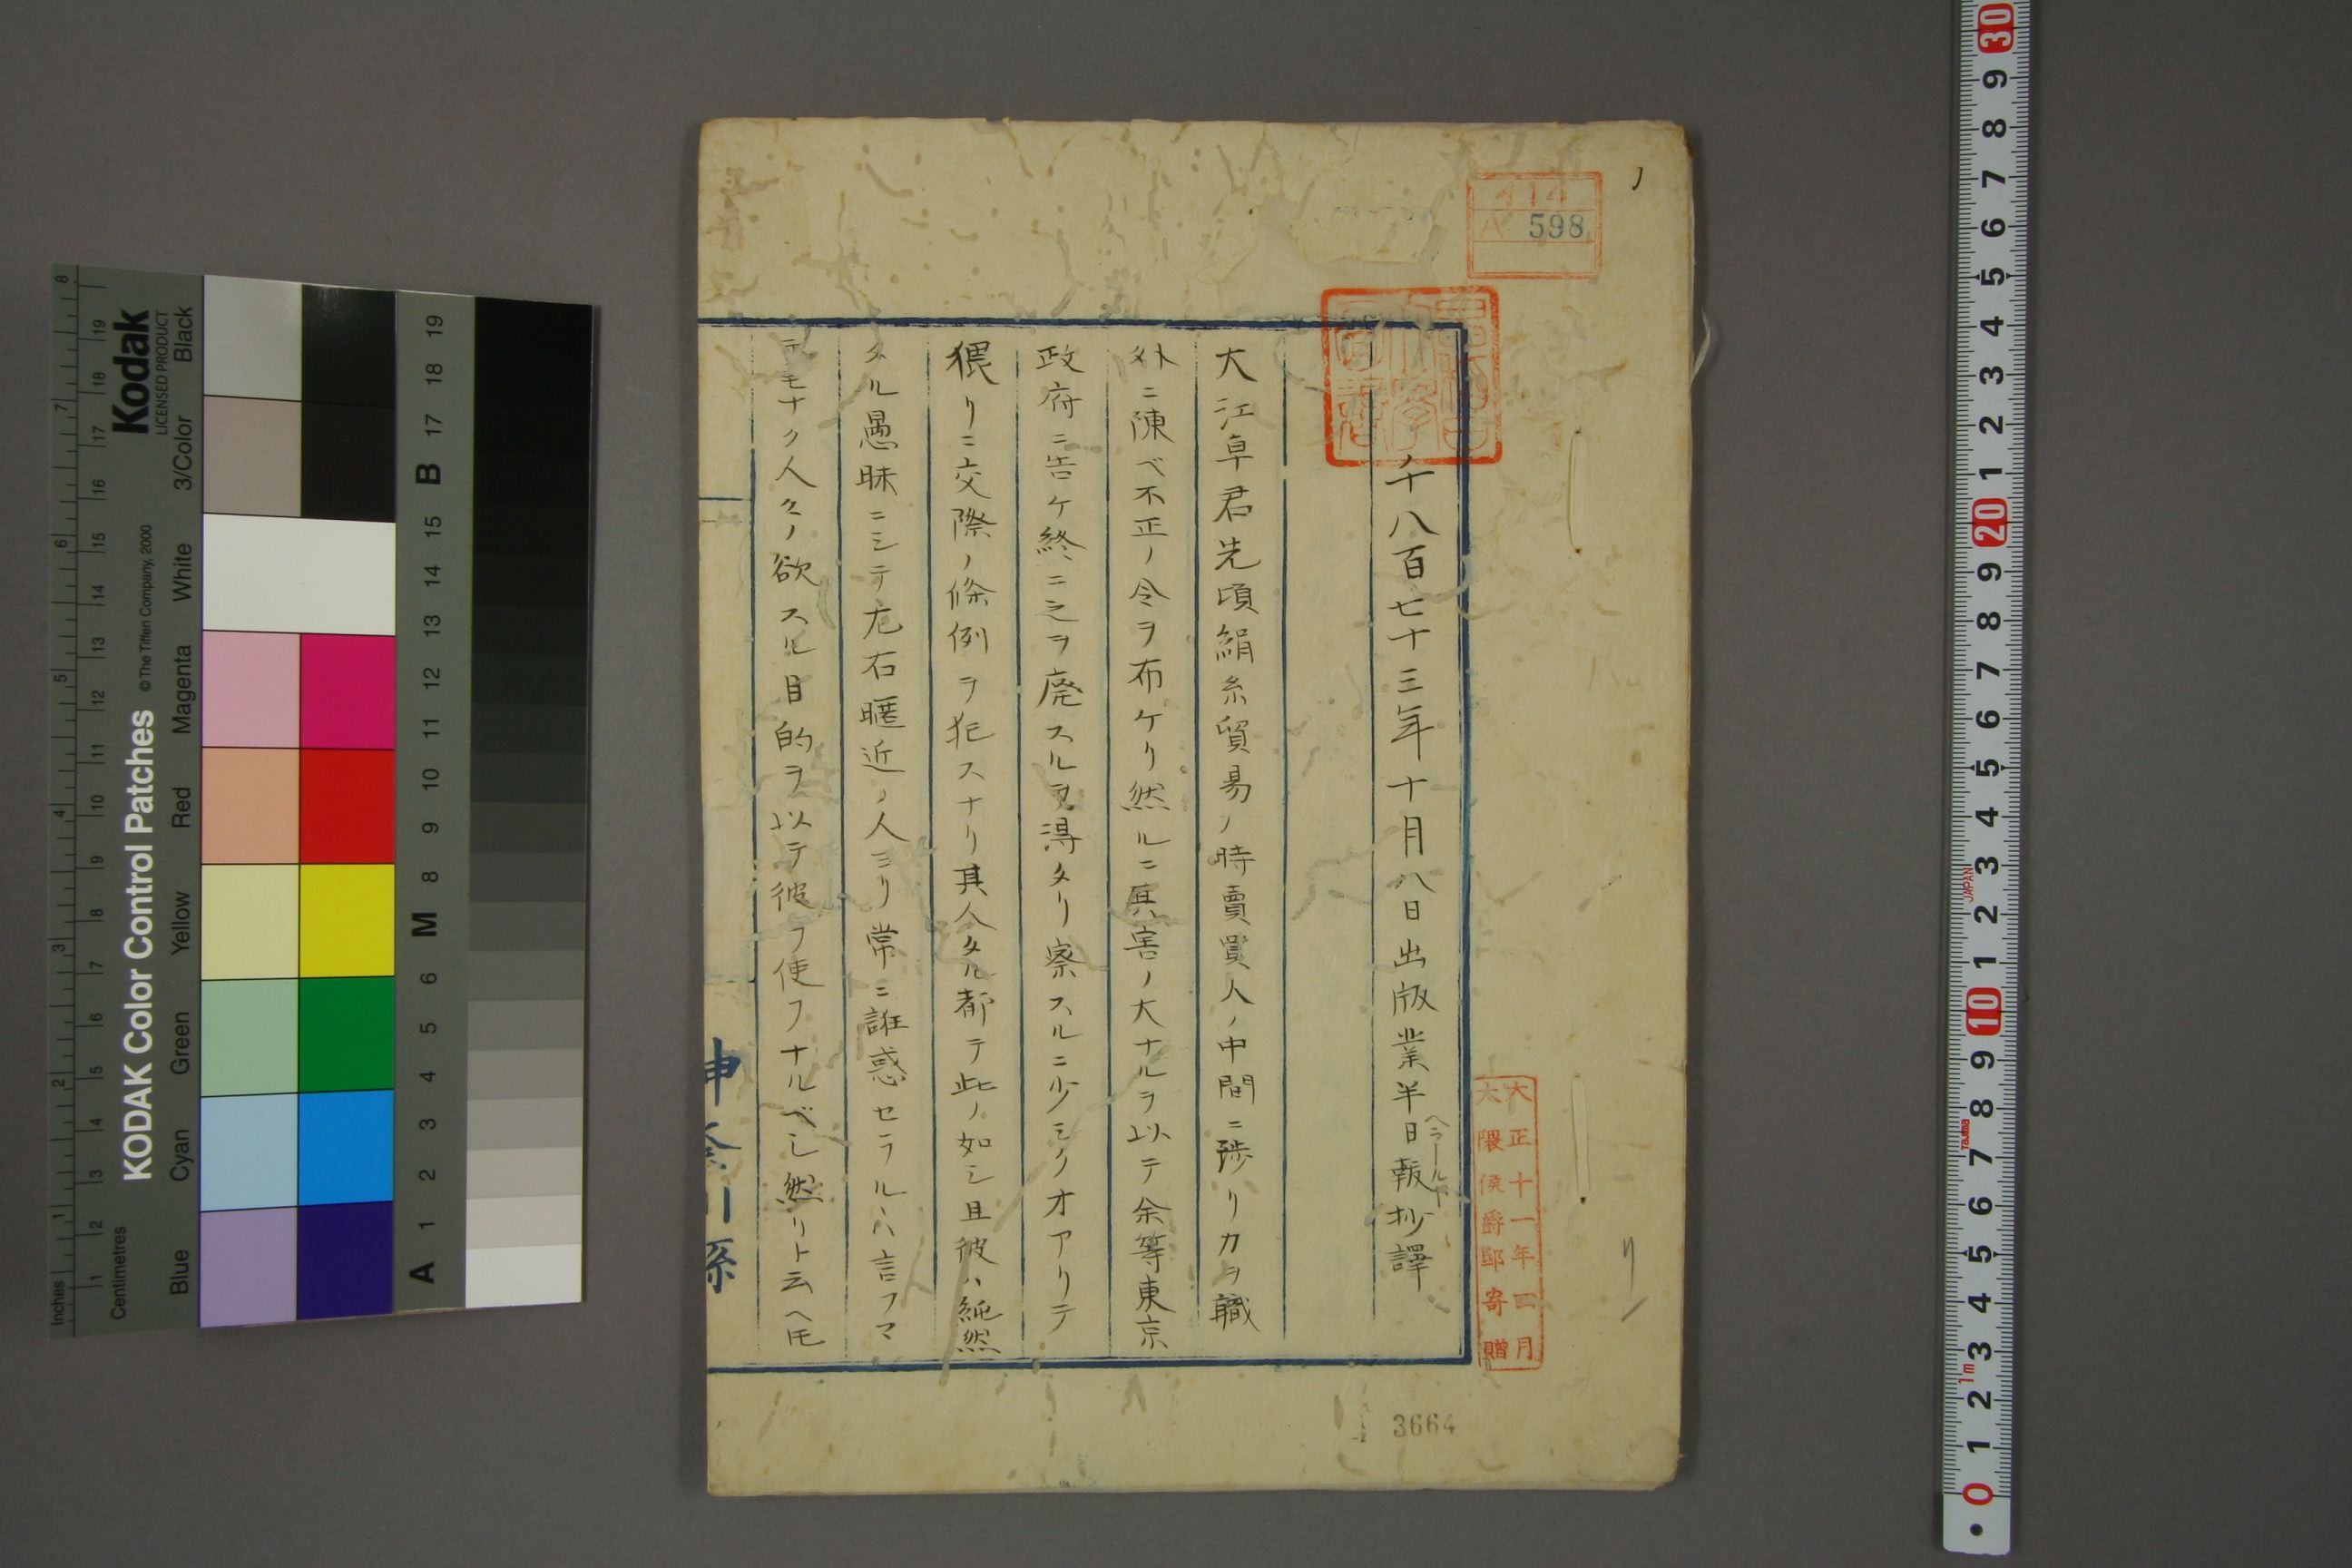 千八百七十三年十月八日出版業半日報抄譯
ヘラールド
大江卓君先頃絹糸貿易ノ時賣買人ノ中間ニ渉リカヲ職
外ニ陳ベ不正ノ令ヲ布ケリ然ルニ其害ノ大ナルヲ以テ余等東京
政府ニ告ケ終ニ之ヲ廃スルヲ得タリ察スルニ少シクオアリテ
猥リニ交際ノ條例ヲ犯スナリ其人タル都テ此ノ如シ且彼ハ純然
タル愚昧ニシテ左右暱近ノ人ヨリ常ニ誑惑セラルヽハ言フマ
テモナク人々ノ欲スル目的ヲ以テ彼ヲ使フナルベシ然リト云ヘ𪜈
神奈川縣
414
A 598
大正十一年四月
大隈侯爵邸寄贈
3664
KODAK Color Control Patches
© The Tiffen Company, 2000
Kodak
LICENSED PRODUCT
Blue Cyan Green Yellow Red Magenta White 3/Color Black
Inches 1 2 3 4 5 6 7 8
Centimetres 1 2 3 4 5 6 7 8 9 10 11 12 13 14 15 16 17 18 19
A 1 2 3 4 5 6 M 8 9 10 11 12 13 14 15 B 17 18 19
0 1 2 3 4 5 6 7 8 9 10 1 2 3 4 5 6 7 8 9 20 1 2 3 4 5 6 7 8 9 30
1m
Tajima
JAPAN